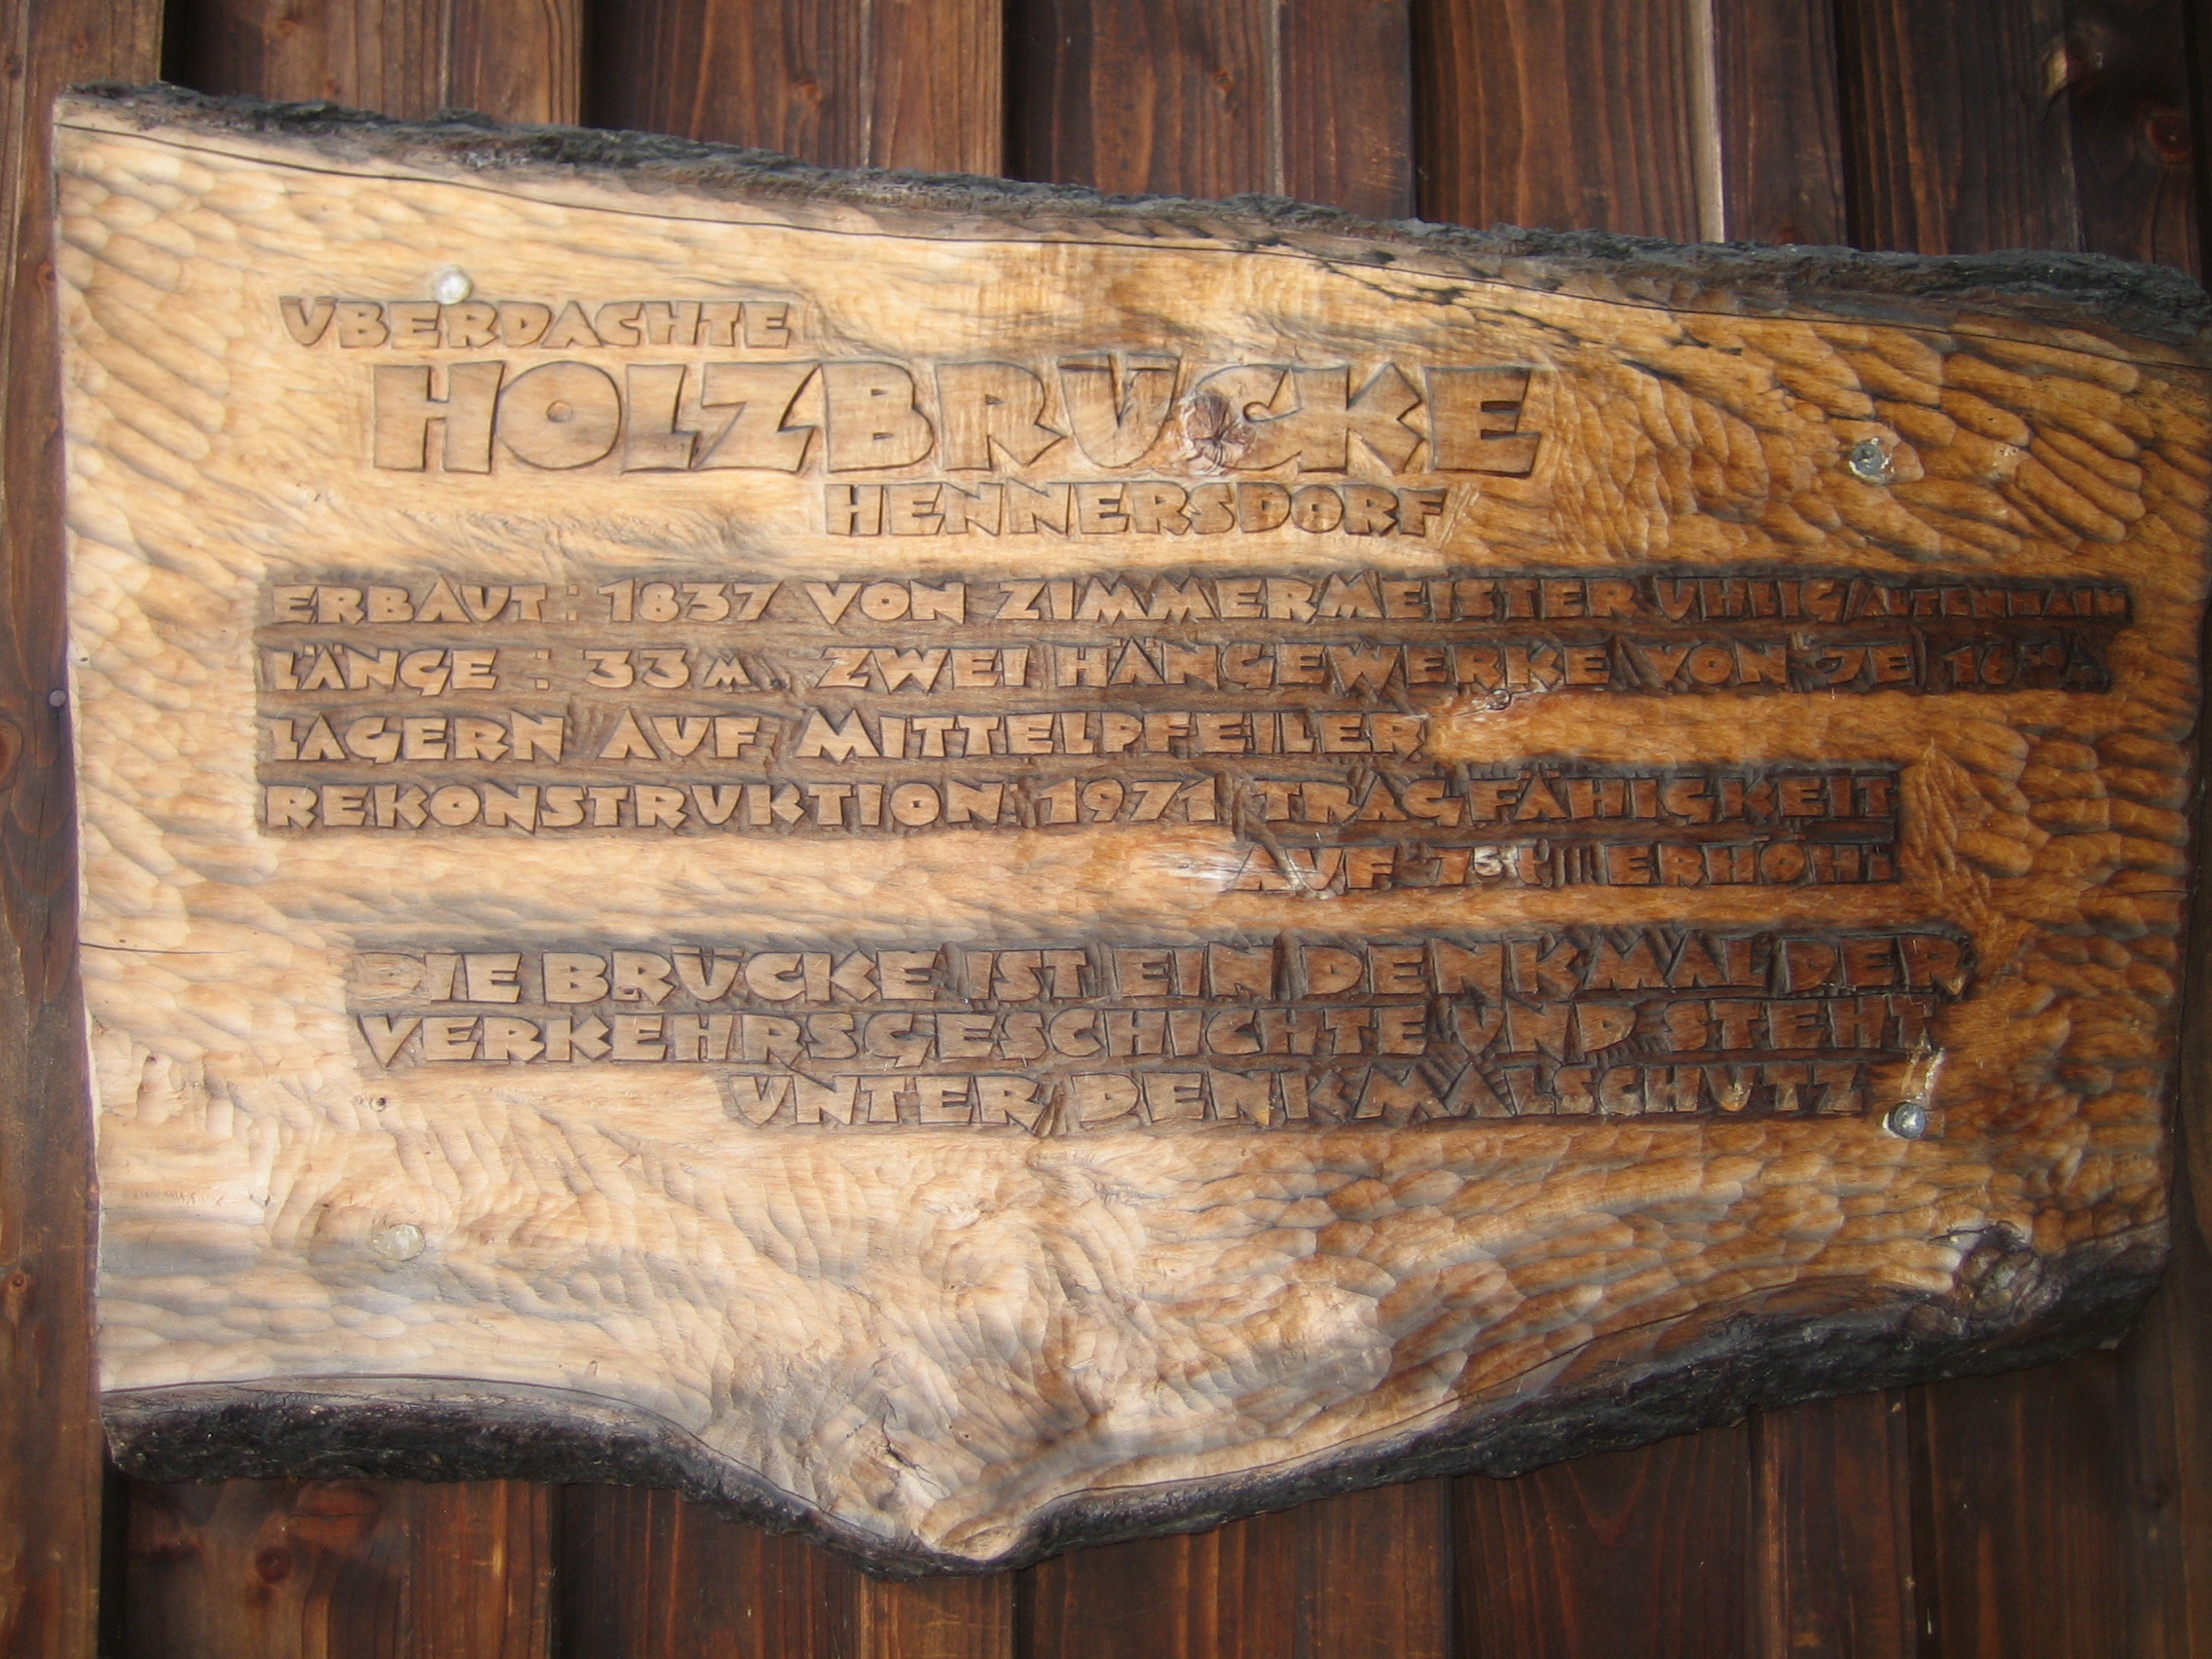 ÜBERDACHTE
HOLZBRÜCKE
HENNERSDORF
ERBAUT: 1837 VON ZIMMERMEISTER UHLIG/ALTENHAIN
LÄNGE: 33 M. ZWEI HÄNGEWERKE VON JE 16 50 M
LAGERN AUF MITTELPFEILER
REKONSTRUKTION 1971 TRAGFÄHIGKEIT
AUF 7 5 t ERHÖHT
DIE BRÜCKE IST EIN DENKMAL DER
VERKEHRSGESCHICHTE UND STEHT
UNTER DENKMALSCHUTZ